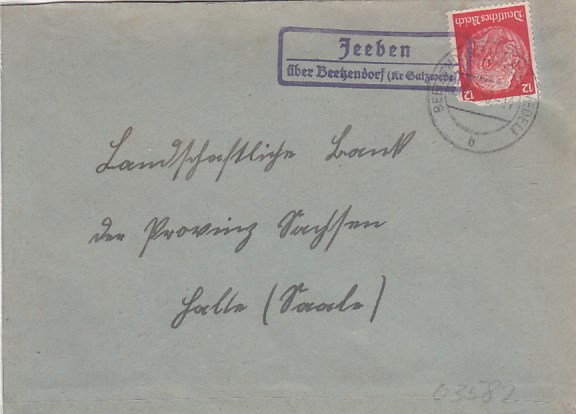 Jeeben
über Beetzendorf (Kr Salzwedel)
Deutsches Reich
12 12
b
Landschaftliche Bank
der Provinz Sachsen
Halle (Saale)
63582